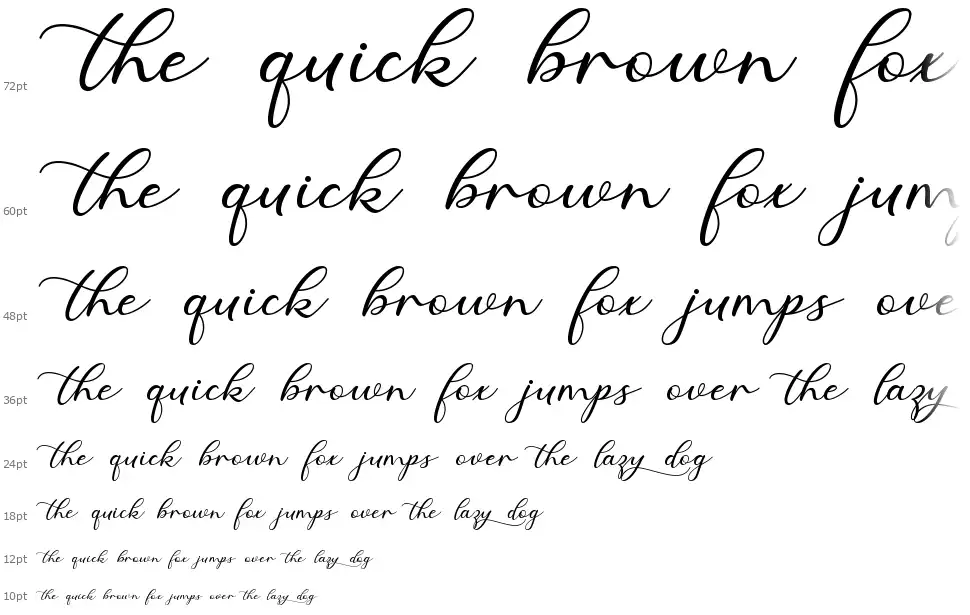 72pt the quick brown fox
60pt the quick brown fox jum
48pt the quick brown fox jumps ove
36pt the quick brown fox jumps over the lazy
24pt the quick brown fox jumps over the lazy dog
18pt the quick brown fox jumps over the lazy dog
12pt the quick brown fox jumps over the lazy dog
10pt the quick brown fox jumps over the lazy dog